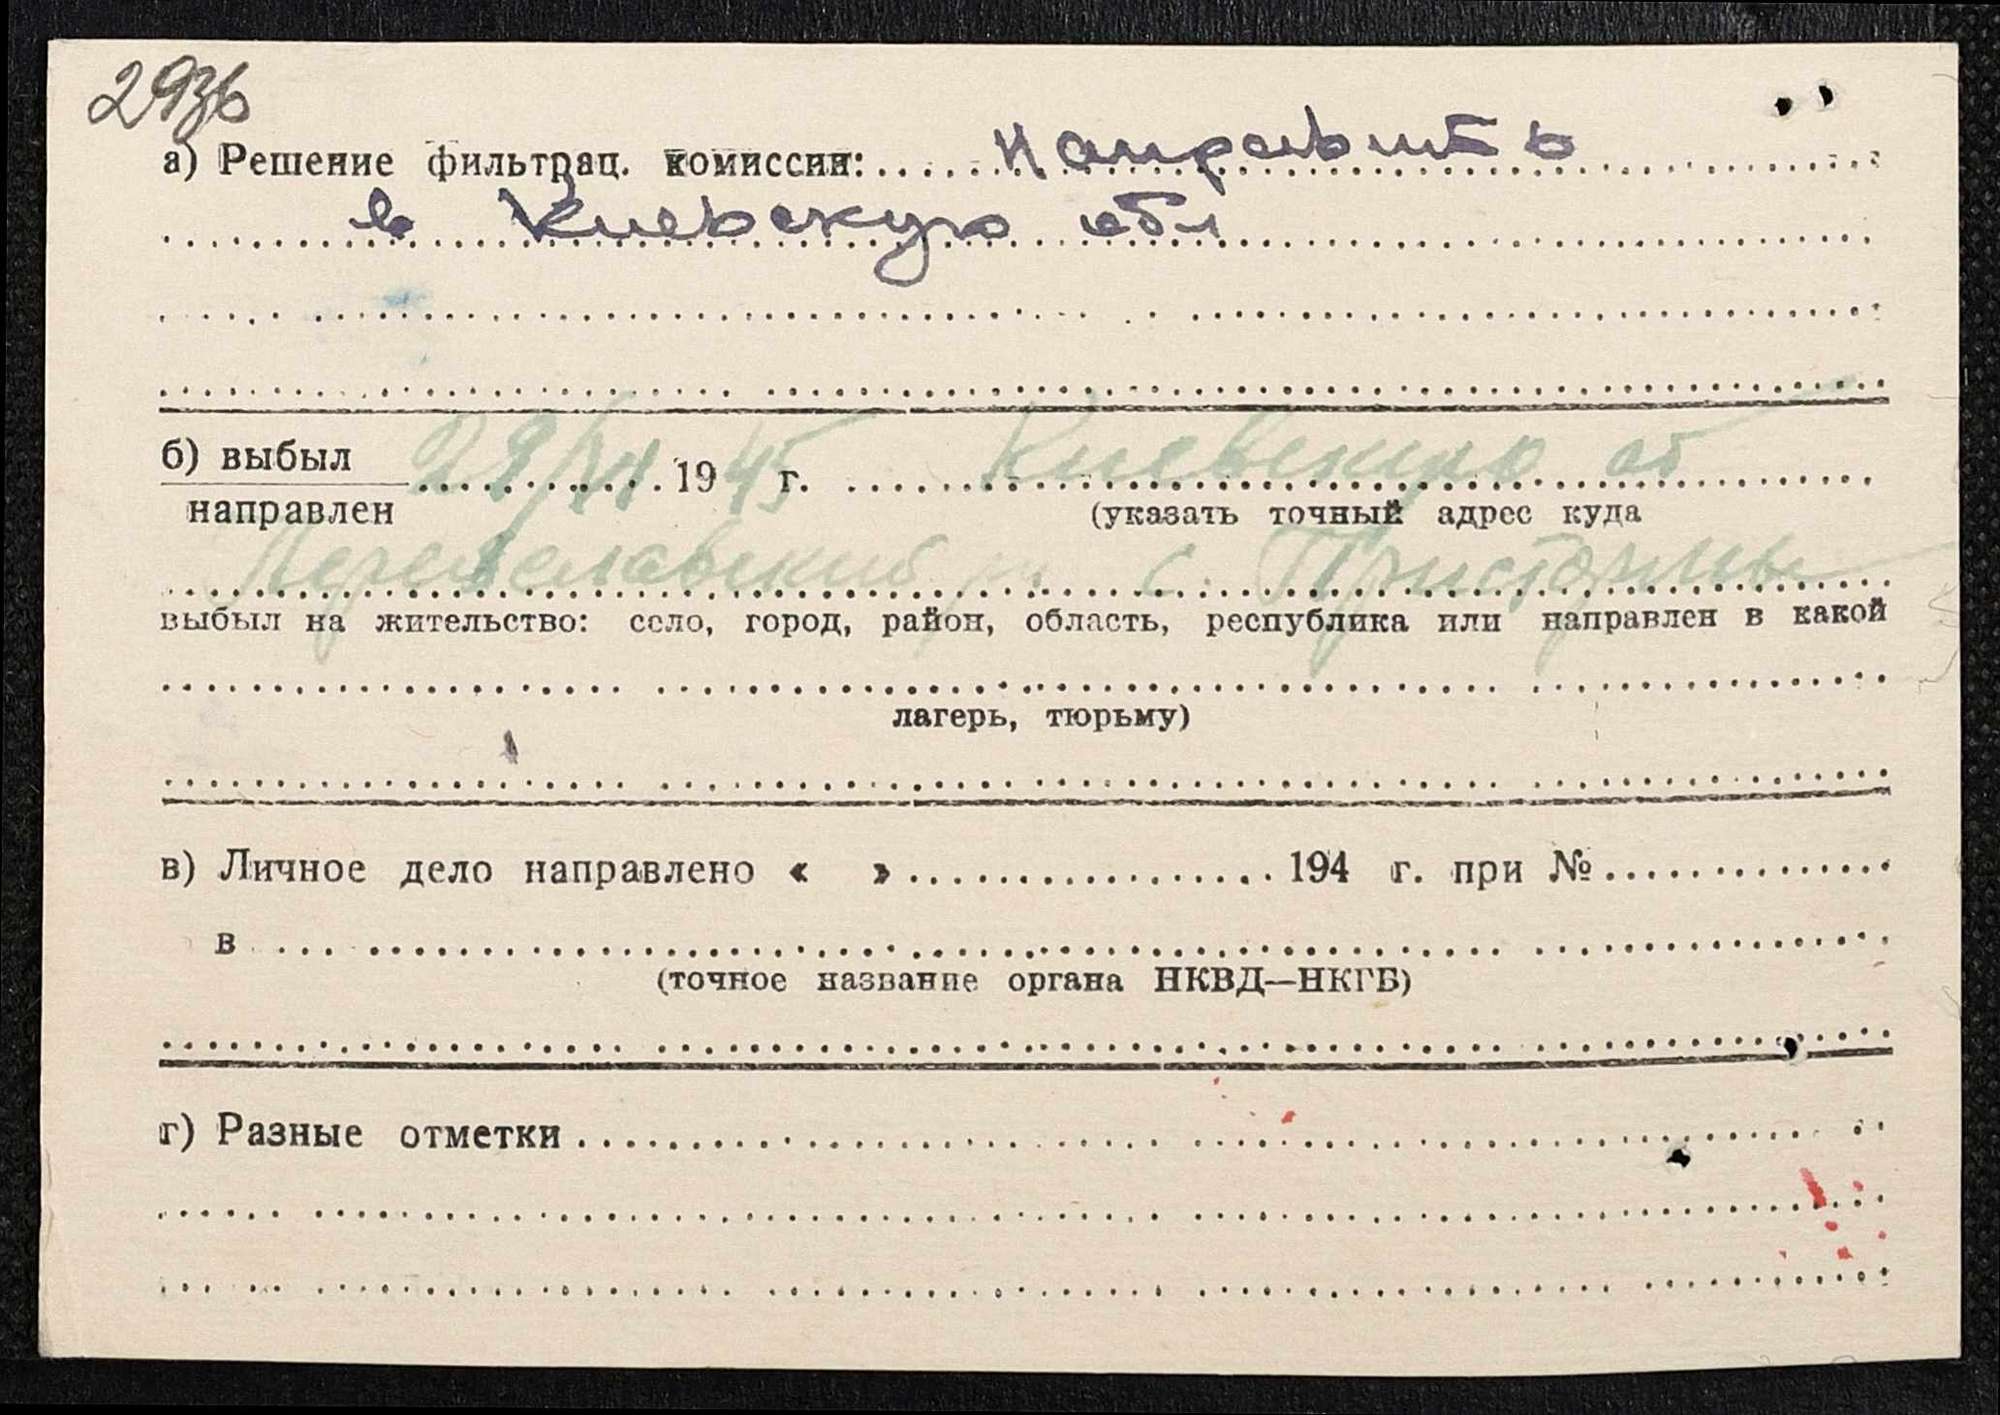 2936
а) Решение фильтрац. комиссии: Направить
в Киевскую обл
б) выбыл
направлен
29/XI 1945 г. Киевскую об
(указать точный адрес куда
Переяславский р. с. Пристромы
выбыл на жительство: село, город, район, область, республика или направлен в какой
лагерь, тюрьму)
в) Личное дело направлено « » 194 г. при №
в
(точное название органа НКВД—НКГБ)
г) Разные отметки